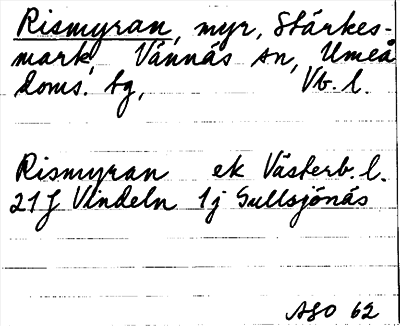 Rismyran, myr, Stärkes-
mark, Vännäs sn, Umeå
doms. tg, Vb. l.
Rismyran ek Västerb. l.
21J Vindeln 1j Gullsjönäs
ASO 62